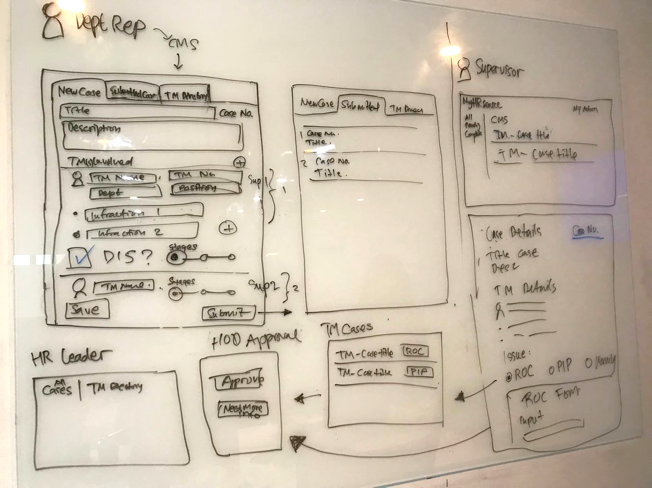 Dept Rep
CMS
New Case
Submitted Case
TM Directory
Title
Case No.
Description
TM Involved
TM Name
TM No
Dept
Position
Sup 1
1
Infraction 1
Infraction 2
DIS?
Stages
TM Name
Stages
Sup 2
2
Save
Submit
New Case
Submitted
1 Case No.
Title.
2 Case No.
Title.
Supervisor
MyHR Service
My Action
All
CMS
TM - Case title
TM - Case title
Case Details
Case No.
Title Case
Descr
TM Details
Issue:
ROC
PIP
ROC Form
Input
HR Leader
All
Cases
TM Directory
HOD Approval
Approve
Need More
Info
TM Cases
TM - Case title
ROC
TM - Case title
PIP